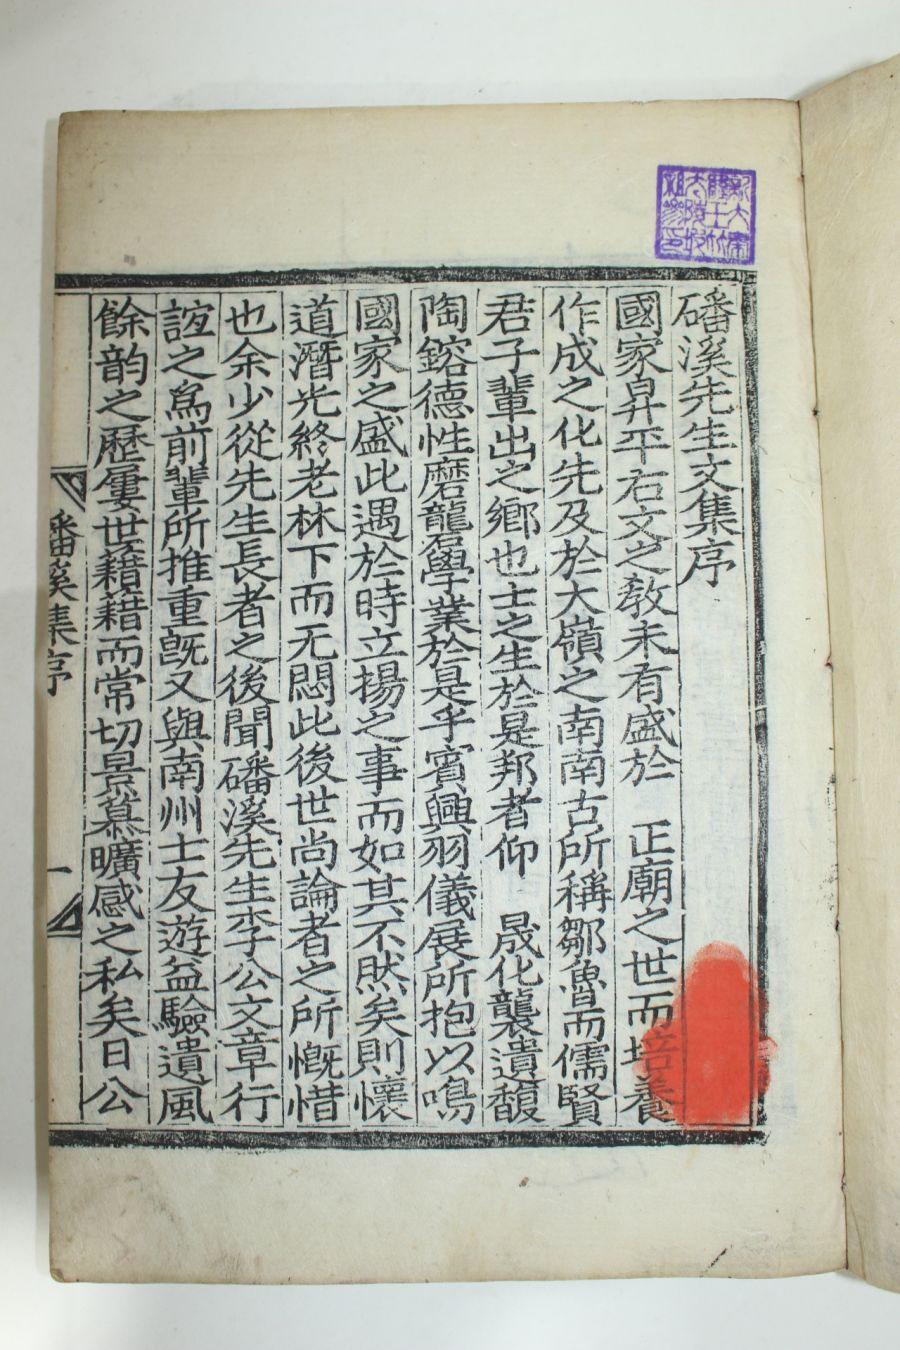 磻溪先生文集序
國家昇平右文之敎未有盛於　正廟之世而培養
作成之化先及於大嶺之南南古所稱鄒魯而儒賢
君子輩出之鄉也士之生於是邦者仰　晟化襲遺馥
陶鎔德性磨礱學業於是乎賓興羽儀展所抱以鳴
國家之盛此遇於時立揚之事而如其不然矣則懷
道潛光終老林下而无悶此後世尚論者之所慨惜
也余少從先生長者之後聞磻溪先生李公文章行
誼之爲前輩所推重旣又與南州士友遊益驗遺風
餘韵之歷屢世藉藉而常切景慕曠感之私矣日公
磻溪集序
一